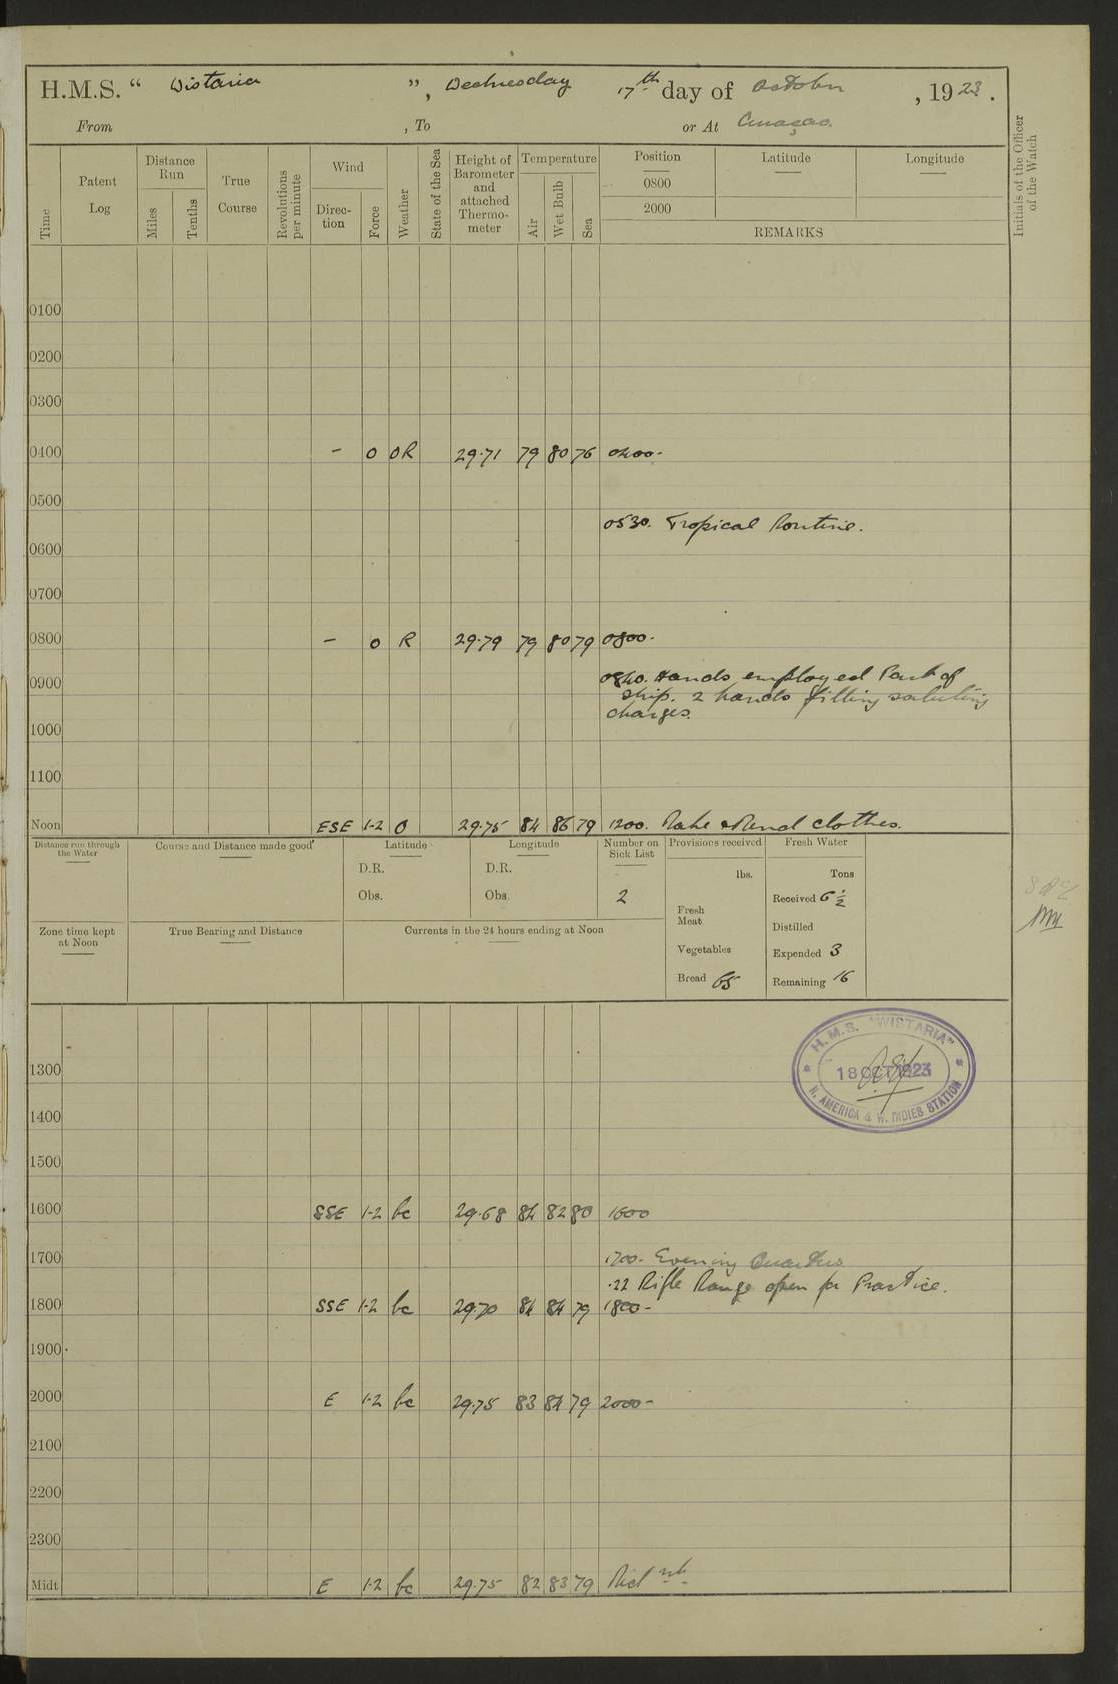 H.M.S. “ Wistaria ”, Wednesday 17th day of October, 1923.
From , To or At Curaçao.
Time
Patent Log
Distance Run
Miles
Tenths
True Course
Revolutions per minute
Wind
Direction
Force
Weather
State of the Sea
Height of Barometer and attached Thermometer
Temperature
Air
Wet Bulb
Sea
Position Latitude Longitude
0800
2000
REMARKS
Initials of the Officer of the Watch
0100
0200
0300
0400 - 0 OR 29.71 79 80 76 0400-
0500
0530. Tropical Routine.
0600
0700
0800 - 0 R 29.79 79 80 79 0800-
0840. Hands employed Part of
0900 ship. 2 hands filling saluting
charges.
1000
1100
Noon ESE 1-2 O 29.75 84 86 79 1200. Make & Mend clothes.
Distance run through the Water
Course and Distance made good
Latitude
D.R.
Obs.
Longitude
D.R.
Obs.
Number on Sick List
2
Provisions received
lbs.
Fresh Meat
Vegetables
Bread 65
Fresh Water
Tons
Received 6½
Distilled
Expended 3
Remaining 16
Zone time kept at Noon
True Bearing and Distance
Currents in the 24 hours ending at Noon
H.M.S. "WISTARIA"
18 OCT 1923
N. AMERICA & W. INDIES STATION
1300
1400
1500
1600 SSE 1-2 bc 29.68 84 82 80 1600
1700 1700- Evening Quarters
.22 Rifle Range open for Practice.
1800 SSE 1-2 bc 29.70 84 84 79 1800-
1900
2000 E 1-2 bc 29.75 83 84 79 2000-
2100
2200
2300
Midt E 1-2 bc 29.75 82 83 79